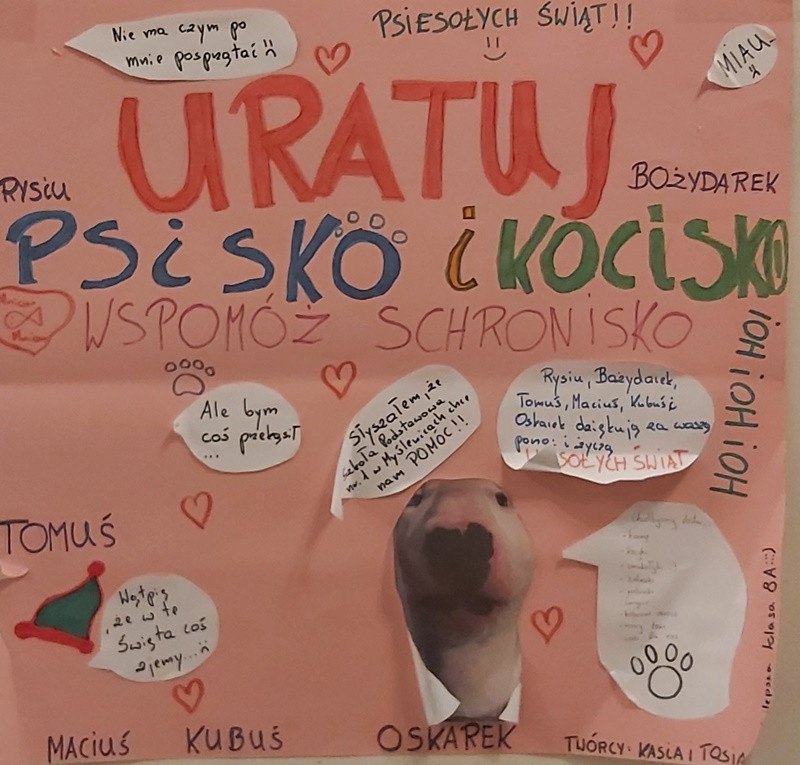 Nie ma czym po
mnie posprzątać
PSIESOŁYCH ŚWIĄT!!
MIAU
URATUJ
RYSIU
BOŻYDAREK
PSiSKO i KOCiSKO
WSPOMÓŻ SCHRONiSKO
iOHiOHiOH
Ale bym
coś przekąsił
...
Słyszałem, że
Szkoła Podstawowa
nr. 1 w Myślenicach chce
nam POMÓC!!
Rysiu, Bożydarek,
Tomuś, Maciuś, Kubuś i
Oskarek dziękują za waszą
pomo: i życzą
SOŁYCH ŚWIĄT
TOMUŚ
Wątpię
, że w te
Święta coś
zjemy...
- karmę
lepsza klasa 8A:))
MACIUŚ
KUBUŚ
OSKAREK
TWÓRCY: KASIA i TOSIA